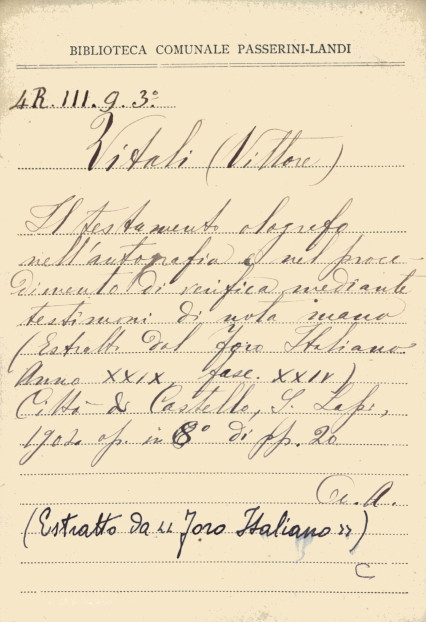 BIBLIOTECA COMUNALE PASSERINI-LANDI
4R.III.9.3º
Vitali (Vittore)
Il testamento olografo
nell'autografia e nel proce-
dimento di verifica mediante
testimoni di nota mano
(Estratto dal Foro Italiano
Anno XXIX, fasc. XXIV)
Città di Castello, S. Lapi,
1904 op. in 8º di pp. 20
A.
(Estratto da "Foro Italiano")
C